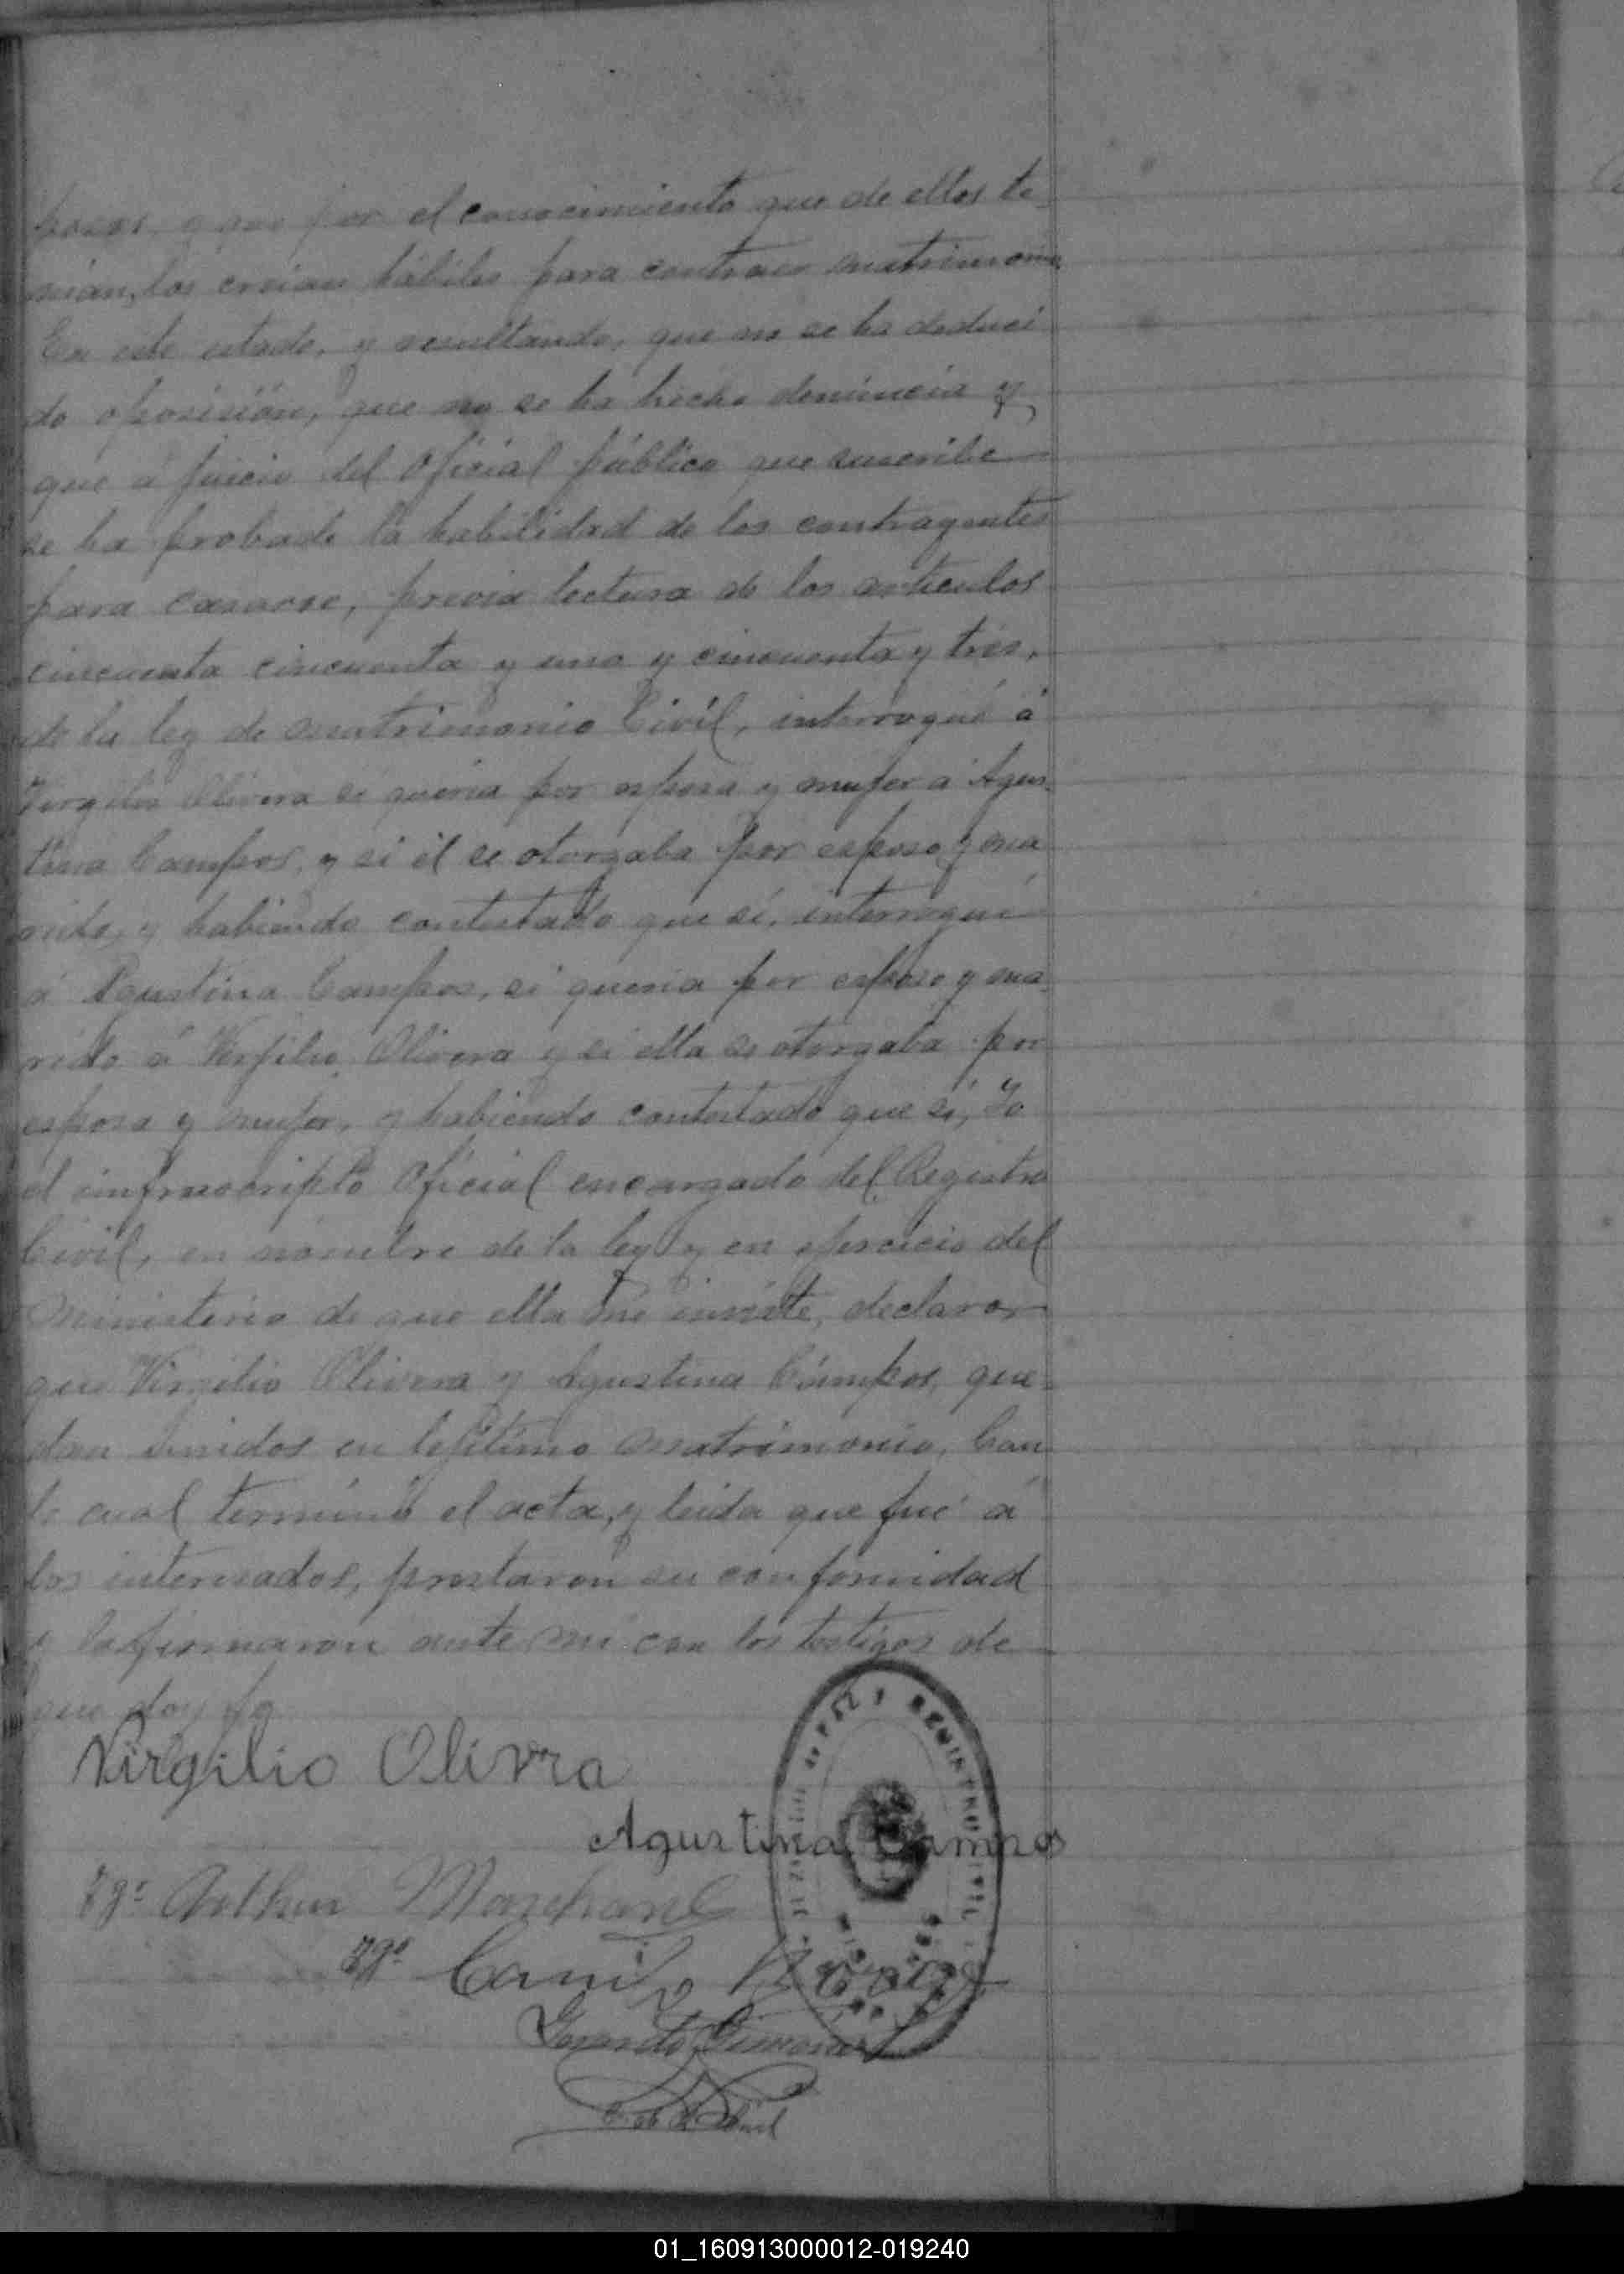 y que por el conocimiento que de ellos te
nian, los creian hábiles para contraer matrimonio
En este estado, y resultando, que no se ha deduci
do oposision, que no se ha hecho denuncia y
que a juicio del Oficial público que suscribe
se ha probado la habilidad de los contragentes
para casarse, previa lectura de los articulos
cincuenta cincuenta y uno y cincuenta y tres,
de la ley de matrimonio Civil, interrogué á
Virgilio Olivera si queria por esposa y mujer a Agus-
tina Campos, y si él se otorgaba por esposo y ma
rido, y habiendo contestado que sí, interrogué
á Agustina Campos, si queria por esposo y ma
rido á Virjilio Olivera y si ella se otorgaba por
esposa y mujer, y habiendo contestado que sí, Yo
el infrascripto Oficial encargado del Registro
Civil, en nombre de la ley y en ejercicio del
ministerio de que ella me inviste, declaro
que Virgilio Olivera y Agustina Campos, que-
dan unidos en lejítimo matrimonio, Con
lo cual terminó el acta, y leida que fué á
los interesados, prestaron su conformidad
y la firmaron ante mi con los testigos de
que doy fe
Virgilio Olivra
Agustina Campos
Tgo. Arthur Marchand
Tgo. Camilo
01_160913000012-019240